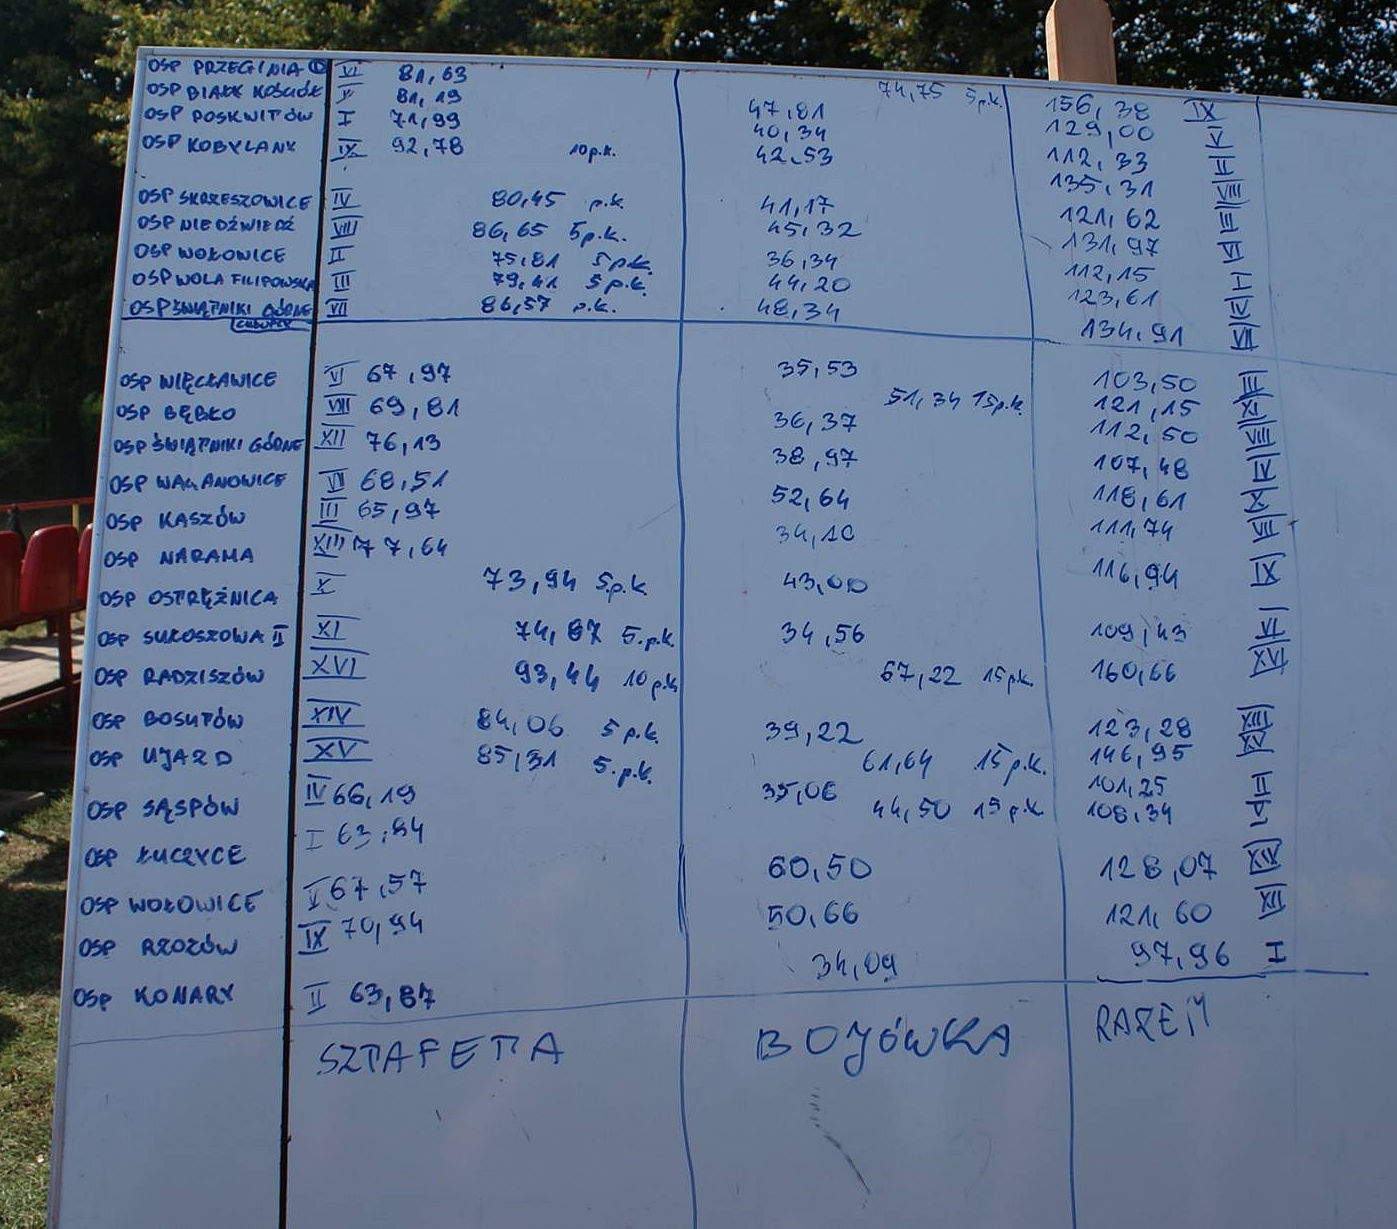 OSP PRZEGINIA D VI 81,63 74,75 5p.k. 156,38 IX
OSP BIAŁY KOŚCIÓŁ V 81,19 47,81 129,00 V
OSP POSKWITÓW I 71,99 40,34 112,33 II
OSP KOBYLANY IX 92,78 10p.k. 42,53 135,31 VIII
OSP SKRZESZOWICE IV 80,45 p.k. 41,17 121,62 III
OSP NIEDŹWIEDŹ VIII 86,65 5p.k. 45,32 131,97 VI
OSP WOŁOWICE II 75,81 5p.k. 36,34 112,15 I
OSP WOLA FILIPOWSKA III 79,41 5p.k. 44,20 123,61 IV
OSP ŚWIĄTNIKI GÓRNE VII 86,57 p.k. 48,34 134,91 VII
CHŁOPCY
OSP WIĘCŁAWICE VI 67,97 35,53 103,50 III
OSP BĘBŁO VIII 69,81 51,34 15p.k. 121,15 XI
OSP ŚWIĄTNIKI GÓRNE XII 76,13 36,37 112,50 VIII
OSP WAGANOWICE VII 68,51 38,97 107,48 IV
OSP KASZÓW III 65,97 52,64 118,61 X
OSP NARAMA XIII 77,64 34,10 111,74 VII
OSP OSTRĘŻNICA X 73,94 5p.k 43,00 116,94 IX
OSP SUŁOSZOWA II XI 74,87 5.p.k 34,56 109,43 VI
OSP RADZISZÓW XVI 93,44 10p.k 67,22 15p.k. 160,66 XVI
OSP BOSUTÓW XIV 84,06 5p.k. 39,22 123,28 XIII
OSP UJAZD XV 85,31 5.p.k. 61,64 15p.k. 146,95 XV
OSP SĄSPÓW IV 66,19 35,06 101,25 II
OSP ŁUCZYCE I 63,84 44,50 15p.k. 108,34 V
OSP WOŁOWICE V 67,57 60,50 128,07 XIV
OSP RZOZÓW IX 70,94 50,66 121,60 XII
OSP KONARY II 63,87 34,09 97,96 I
SZTAFETA BOJÓWKA RAZEM